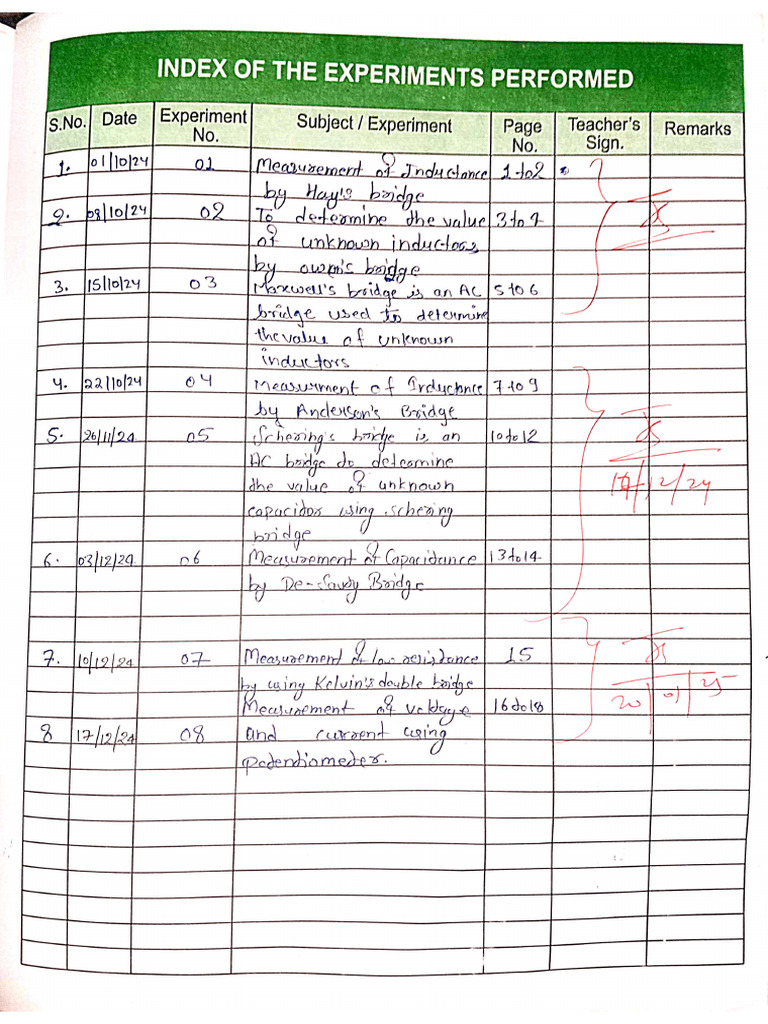 INDEX OF THE EXPERIMENTS PERFORMED
S.No. Date Experiment No. Subject / Experiment Page No. Teacher's Sign. Remarks
1. 01/10/24 01 Measurement of Inductance 1 to 2
by Hay's bridge
2. 08/10/24 02 To determine the value 3 to 4
of unknown inductors
by owen's bridge
3. 15/10/24 03 Maxwell's bridge is an AC 5 to 6
bridge used to determine
the value of unknown
inductors
4. 22/10/24 04 Measurment of Inductance 7 to 9
by Anderson's Bridge
5. 26/11/24 05 Schering's bridge is an 10 to 12
AC bridge to determine
the value of unknown
capacitor using schering
bridge
17/12/24
6. 03/12/24 06 Measurement of Capacitance 13 to 14
by De-Sauty Bridge
7. 10/12/24 07 Measurement of low resistance 15
by using Kelvin's double bridge
20/01/25
Measurement of voltage 16 to 18
8 17/12/24 08 and current using
potentiometer.